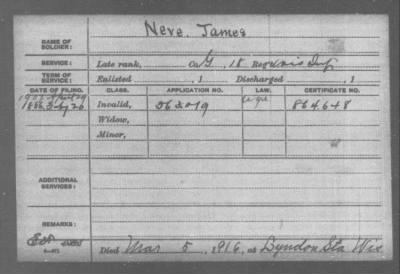 NAME OF SOLDIER: Neve, James
SERVICE: Late rank, Co. G, 18 Reg't Wis Inf
TERM OF SERVICE: Enlisted , 1 Discharged , 1
DATE OF FILING. CLASS. APPLICATION NO. LAW. CERTIFICATE NO.
1886 Invalid, 562019 864648
Widow,
Minor,
ADDITIONAL SERVICES:
REMARKS:
Died Mar 5, 1916, at Lyndon Sta Wis